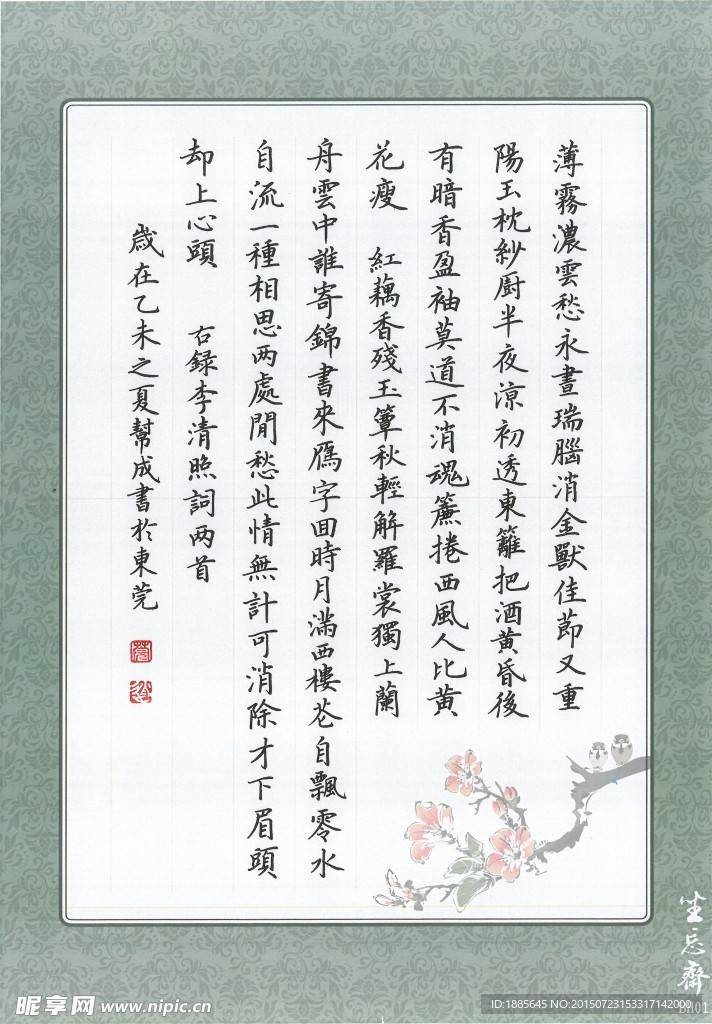 薄霧濃雲愁永晝瑞腦消金獸佳節又重
陽玉枕紗厨半夜涼初透東籬把酒黄昏後
有暗香盈袖莫道不消魂簾捲西風人比黄
花瘦　紅藕香殘玉簟秋輕解羅裳獨上蘭
舟雲中誰寄錦書來鴈字回時月滿西樓花自飄零水
自流一種相思两處閒愁此情無計可消除才下眉頭
却上心頭　右録李清照詞两首
歲在乙未之夏幫成書於東莞
坐忘齋
BH01
昵享网 www.nipic.cn
ID:1885645 NO:20150723153317142000